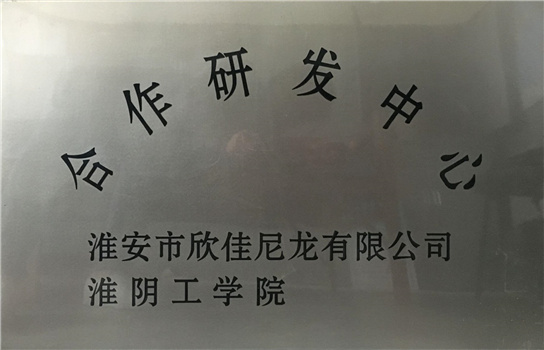 合作研发中心
淮安市欣佳尼龙有限公司
淮阴工学院